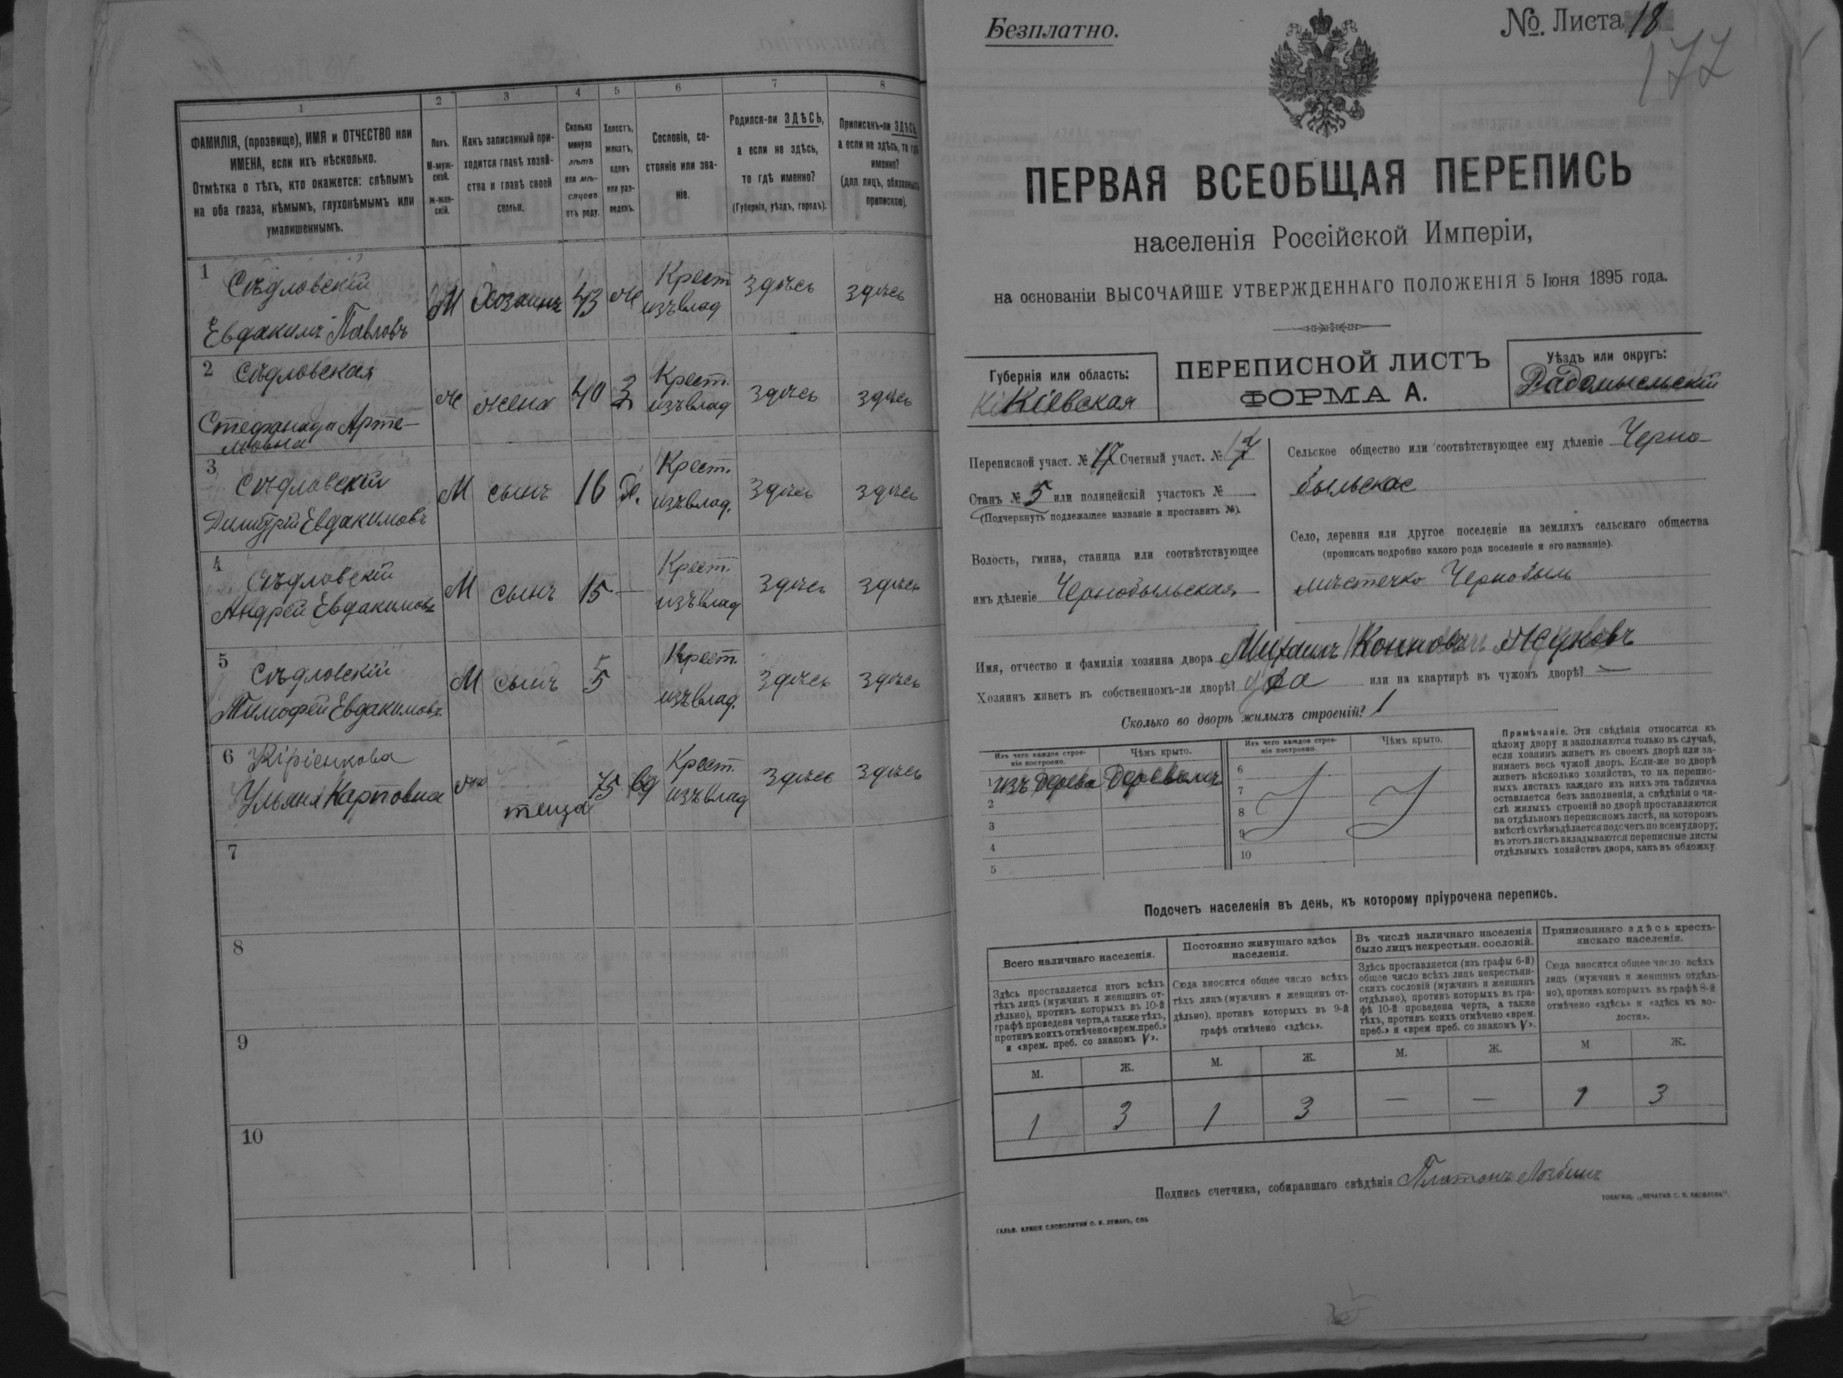 1
2
3
4
5
6
7
8
ФАМИЛІЯ, (прозвище), ИМЯ и ОТЧЕСТВО или
ИМЕНА, если ихъ нѣсколько.
Отмѣтка о тѣхъ, кто окажется: слѣпымъ
на оба глаза, нѣмымъ, глухонѣмымъ или
умалишеннымъ.
Полъ.
М-муж-
ской.
ж-жен-
скій.
Какъ записанный при-
ходится главѣ хозяй-
ства и главѣ своей
семьи.
Сколько
минуло
лѣтъ
или мѣ-
сяцевъ
отъ роду.
Холостъ,
женатъ,
вдовъ
или раз-
веденъ.
Сословіе, со-
стояніе или зва-
ніе.
Родился-ли ЗДѢСЬ,
а если не здѣсь,
то гдѣ именно?
(Губернія, уѣздъ, городъ).
Приписанъ-ли ЗДѢСЬ,
а если не здѣсь, то гдѣ
именно?
(для лицъ, обязанныхъ
припискою).
1 Сѣдловскій
Евдакимъ Павловъ
М Хозаинъ 43 Ж Крест изъ влад здѣсь здѣсь
2 Сѣдловская
Степанида Арте-
мовна
Ж жена 40 З Крест. изъ влад здѣсь здѣсь
3 Сѣдловскій
Димитрій Евдакимовъ
М сынъ 16 Крест. изъ влад. здѣсь здѣсь
4 Сѣдловскій
Андрей Евдакимовъ
М сынъ 15 — Крест. изъ влад здѣсь здѣсь
5 Сѣдловскій
Тимофей Евдакимовъ
М сынъ 5 Крест. изъ влад. здѣсь здѣсь
6 Кіріенкова
Ульяна Карповна
теща 75 вд Крест. изъ влад здѣсь здѣсь
7
8
9
10
Безплатно.
№. Листа 18
177
ПЕРВАЯ ВСЕОБЩАЯ ПЕРЕПИСЬ
населенія Россійской Имперіи,
на основаніи ВЫСОЧАЙШЕ УТВЕРЖДЕННАГО ПОЛОЖЕНІЯ 5 Іюня 1895 года.
Губернія или область:
Кіевская
ПЕРЕПИСНОЙ ЛИСТЪ
ФОРМА А.
Уѣздъ или округъ:
Радомысльскій
Переписной участ. № 17 Счетный участ. № 17
Станъ № 5 или полицейскій участокъ № —
(Подчеркнуть подлежащее названіе и проставить №).
Волость, гмина, станица или соотвѣтствующее
имъ дѣленіе Чернобыльская
Сельское общество или соотвѣтствующее ему дѣленіе Черно-
быльское
Село, деревня или другое поселеніе на земляхъ сельскаго общества
(прописать подробно какого рода поселеніе и его названіе).
мѣстечко Чернобыль
Имя, отчество и фамилія хозяина двора Михаилъ Жуковъ
Хозяинъ живетъ въ собственномъ-ли дворѣ? да или на квартирѣ въ чужомъ дворѣ? —
Сколько во дворѣ жилыхъ строеній? 1
Изъ чего каждое строе-
ніе построено.
Чѣмъ крыто.
Изъ чего каждое строе-
ніе построено.
Чѣмъ крыто.
1 изъ дерева Деревомъ
2
3
4
5
6
7
8
9
10
Примѣчаніе. Эти свѣдѣнія относятся къ
цѣлому двору и заполняются только въ случаѣ,
если хозяинъ живетъ въ своемъ дворѣ или за-
нимаетъ весь чужой дворъ. Если-же во дворѣ
живетъ нѣсколько хозяйствъ, то на перепис-
ныхъ листахъ каждаго изъ нихъ эта табличка
оставляется безъ заполненія, а свѣдѣнія о чи-
слѣ жилыхъ строеній во дворѣ проставляются
на отдѣльномъ переписномъ листѣ, на которомъ
вмѣстѣ съ тѣмъ дѣлается подсчетъ по всему двору;
въ этотъ листъ вкладываются переписные листы
отдѣльныхъ хозяйствъ двора, какъ въ обложку.
Подсчетъ населенія въ день, къ которому пріурочена перепись.
Всего наличнаго населенія.
Здѣсь проставляется итогъ всѣхъ
тѣхъ лицъ (мужчинъ и женщинъ от-
дѣльно), противъ которыхъ въ 10-й
графѣ проведена черта, а также тѣхъ,
противъ коихъ отмѣчено «врем. преб.»
и «врем. преб. со знакомъ V».
Постоянно живущаго здѣсь
населенія.
Сюда вносится общее число всѣхъ
тѣхъ лицъ (мужчинъ и женщинъ от-
дѣльно), противъ которыхъ въ 9-й
графѣ отмѣчено «здѣсь».
Въ числѣ наличнаго населенія
было лицъ некрестьян. сословій.
Здѣсь проставляется (изъ графы 6-й)
общее число всѣхъ лицъ некрестьян-
скихъ сословій (мужчинъ и женщинъ
отдѣльно), противъ которыхъ въ гра-
фѣ 10-й проведена черта, а также
тѣхъ, противъ коихъ отмѣчено «врем.
преб.» и «врем преб. со знакомъ V».
Приписаннаго здѣсь кресть-
янскаго населенія.
Сюда вносится общее число всѣхъ
лицъ (мужчинъ и женщинъ отдѣль-
но), противъ которыхъ въ графѣ 8-й
отмѣчено «здѣсь» и «здѣсь къ во-
лости».
М. Ж. М. Ж. М. Ж. М. Ж.
1 3 1 3 — — 1 3
Подпись счетчика, собиравшаго свѣдѣнія Платонъ